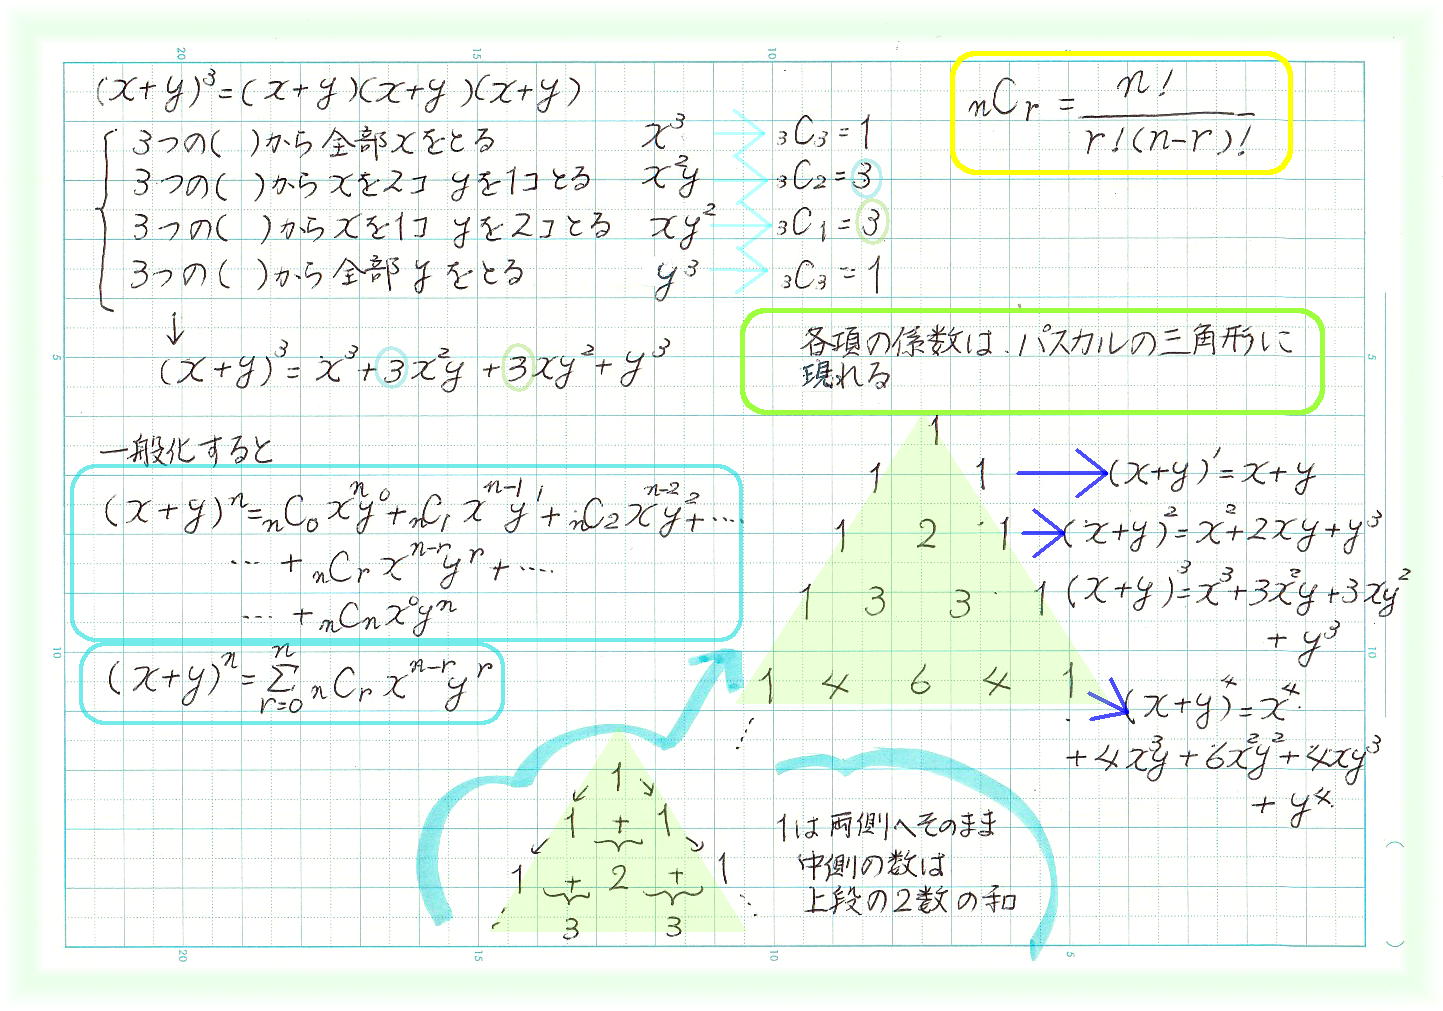 (x+y)³=(x+y)(x+y)(x+y)
3つの( )から全部xをとる x³ → ₃C₃=1
3つの( )からxを2コ yを1コとる x²y → ₃C₂=3
3つの( )からxを1コ yを2コとる xy² → ₃C₁=3
3つの( )から全部yをとる y³ → ₃C₃=1
↓
(x+y)³=x³+3x²y+3xy²+y³
nCr = n! / r!(n-r)!
各項の係数は、パスカルの三角形に
現れる
一般化すると
(x+y)ⁿ=nC₀xⁿy⁰+nC₁xⁿ⁻¹y¹+nC₂xⁿ⁻²y²+…
…+nCr xⁿ⁻ʳyʳ+…
…+nCn x⁰yⁿ
(x+y)ⁿ=Σ[r=0, n] nCr xⁿ⁻ʳyʳ
1
1 1 → (x+y)¹=x+y
1 2 1 → (x+y)²=x²+2xy+y³
1 3 3 1 (x+y)³=x³+3x²y+3xy²
+y³
1 4 6 4 1 → (x+y)⁴=x⁴
+4x³y+6x²y²+4xy³
+y⁴
1
1 + 1
1 + 2 + 1
3 3
1は両側へそのまま
中側の数は
上段の2数の和
20 15 10
5
10
5
10
20 15 10 5